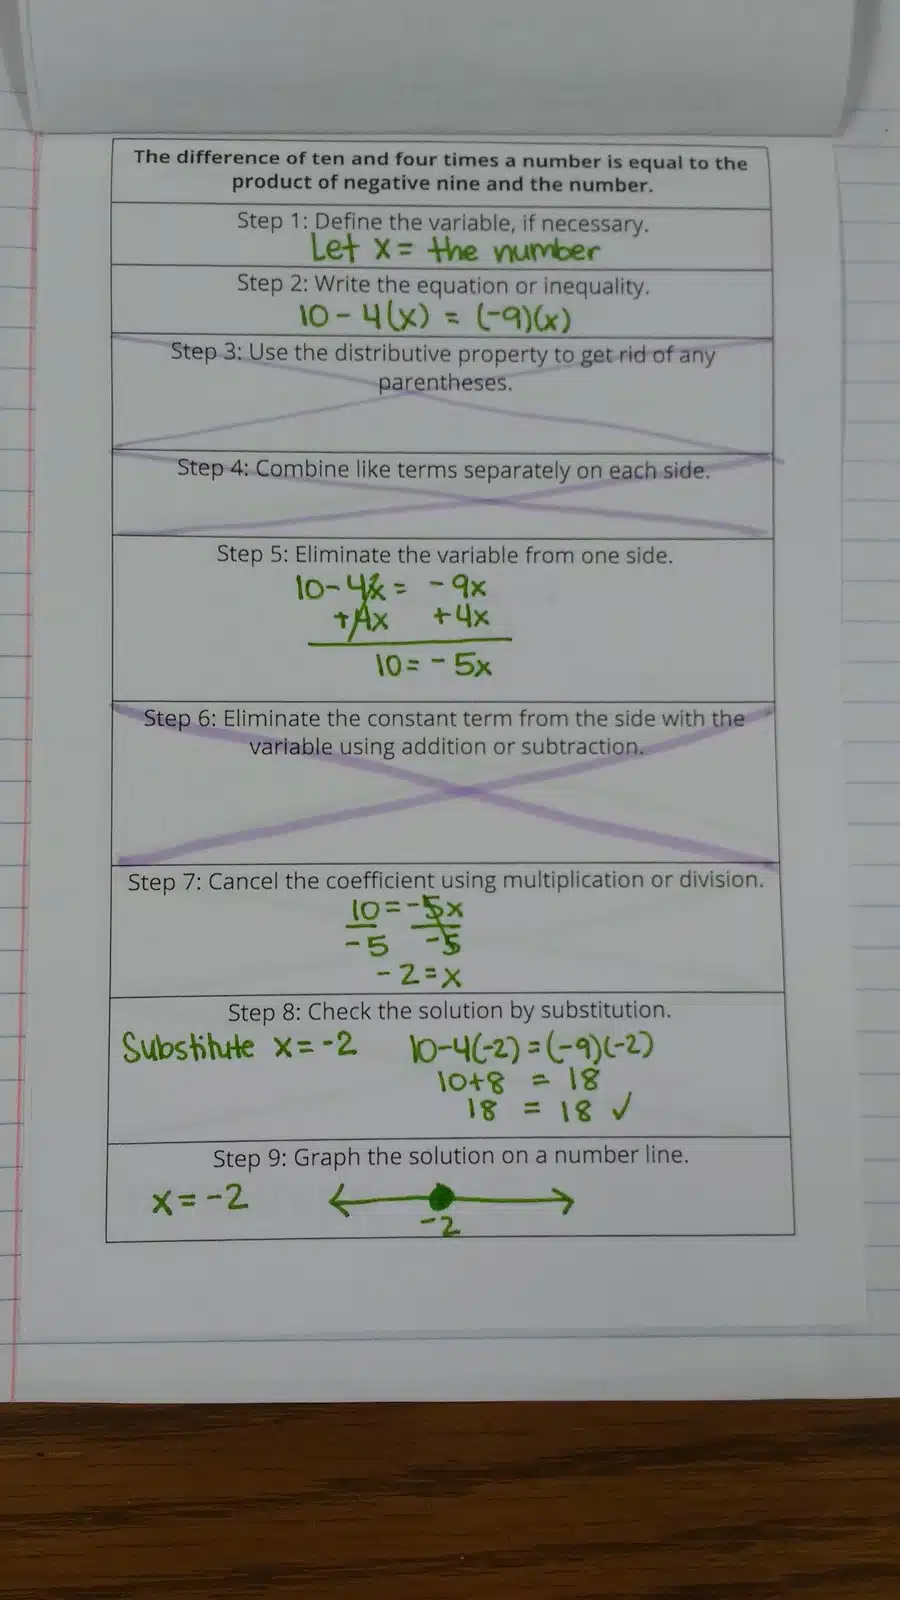 The difference of ten and four times a number is equal to the
product of negative nine and the number.
Step 1: Define the variable, if necessary.
Let x = the number
Step 2: Write the equation or inequality.
10 - 4(x) = (-9)(x)
Step 3: Use the distributive property to get rid of any
parentheses.
Step 4: Combine like terms separately on each side.
Step 5: Eliminate the variable from one side.
10-4x = -9x
+4x +4x
10 = -5x
Step 6: Eliminate the constant term from the side with the
variable using addition or subtraction.
Step 7: Cancel the coefficient using multiplication or division.
10 = -5x
-5 -5
-2 = x
Step 8: Check the solution by substitution.
Substitute x = -2 10-4(-2) = (-9)(-2)
10+8 = 18
18 = 18 ✓
Step 9: Graph the solution on a number line.
x = -2
-2